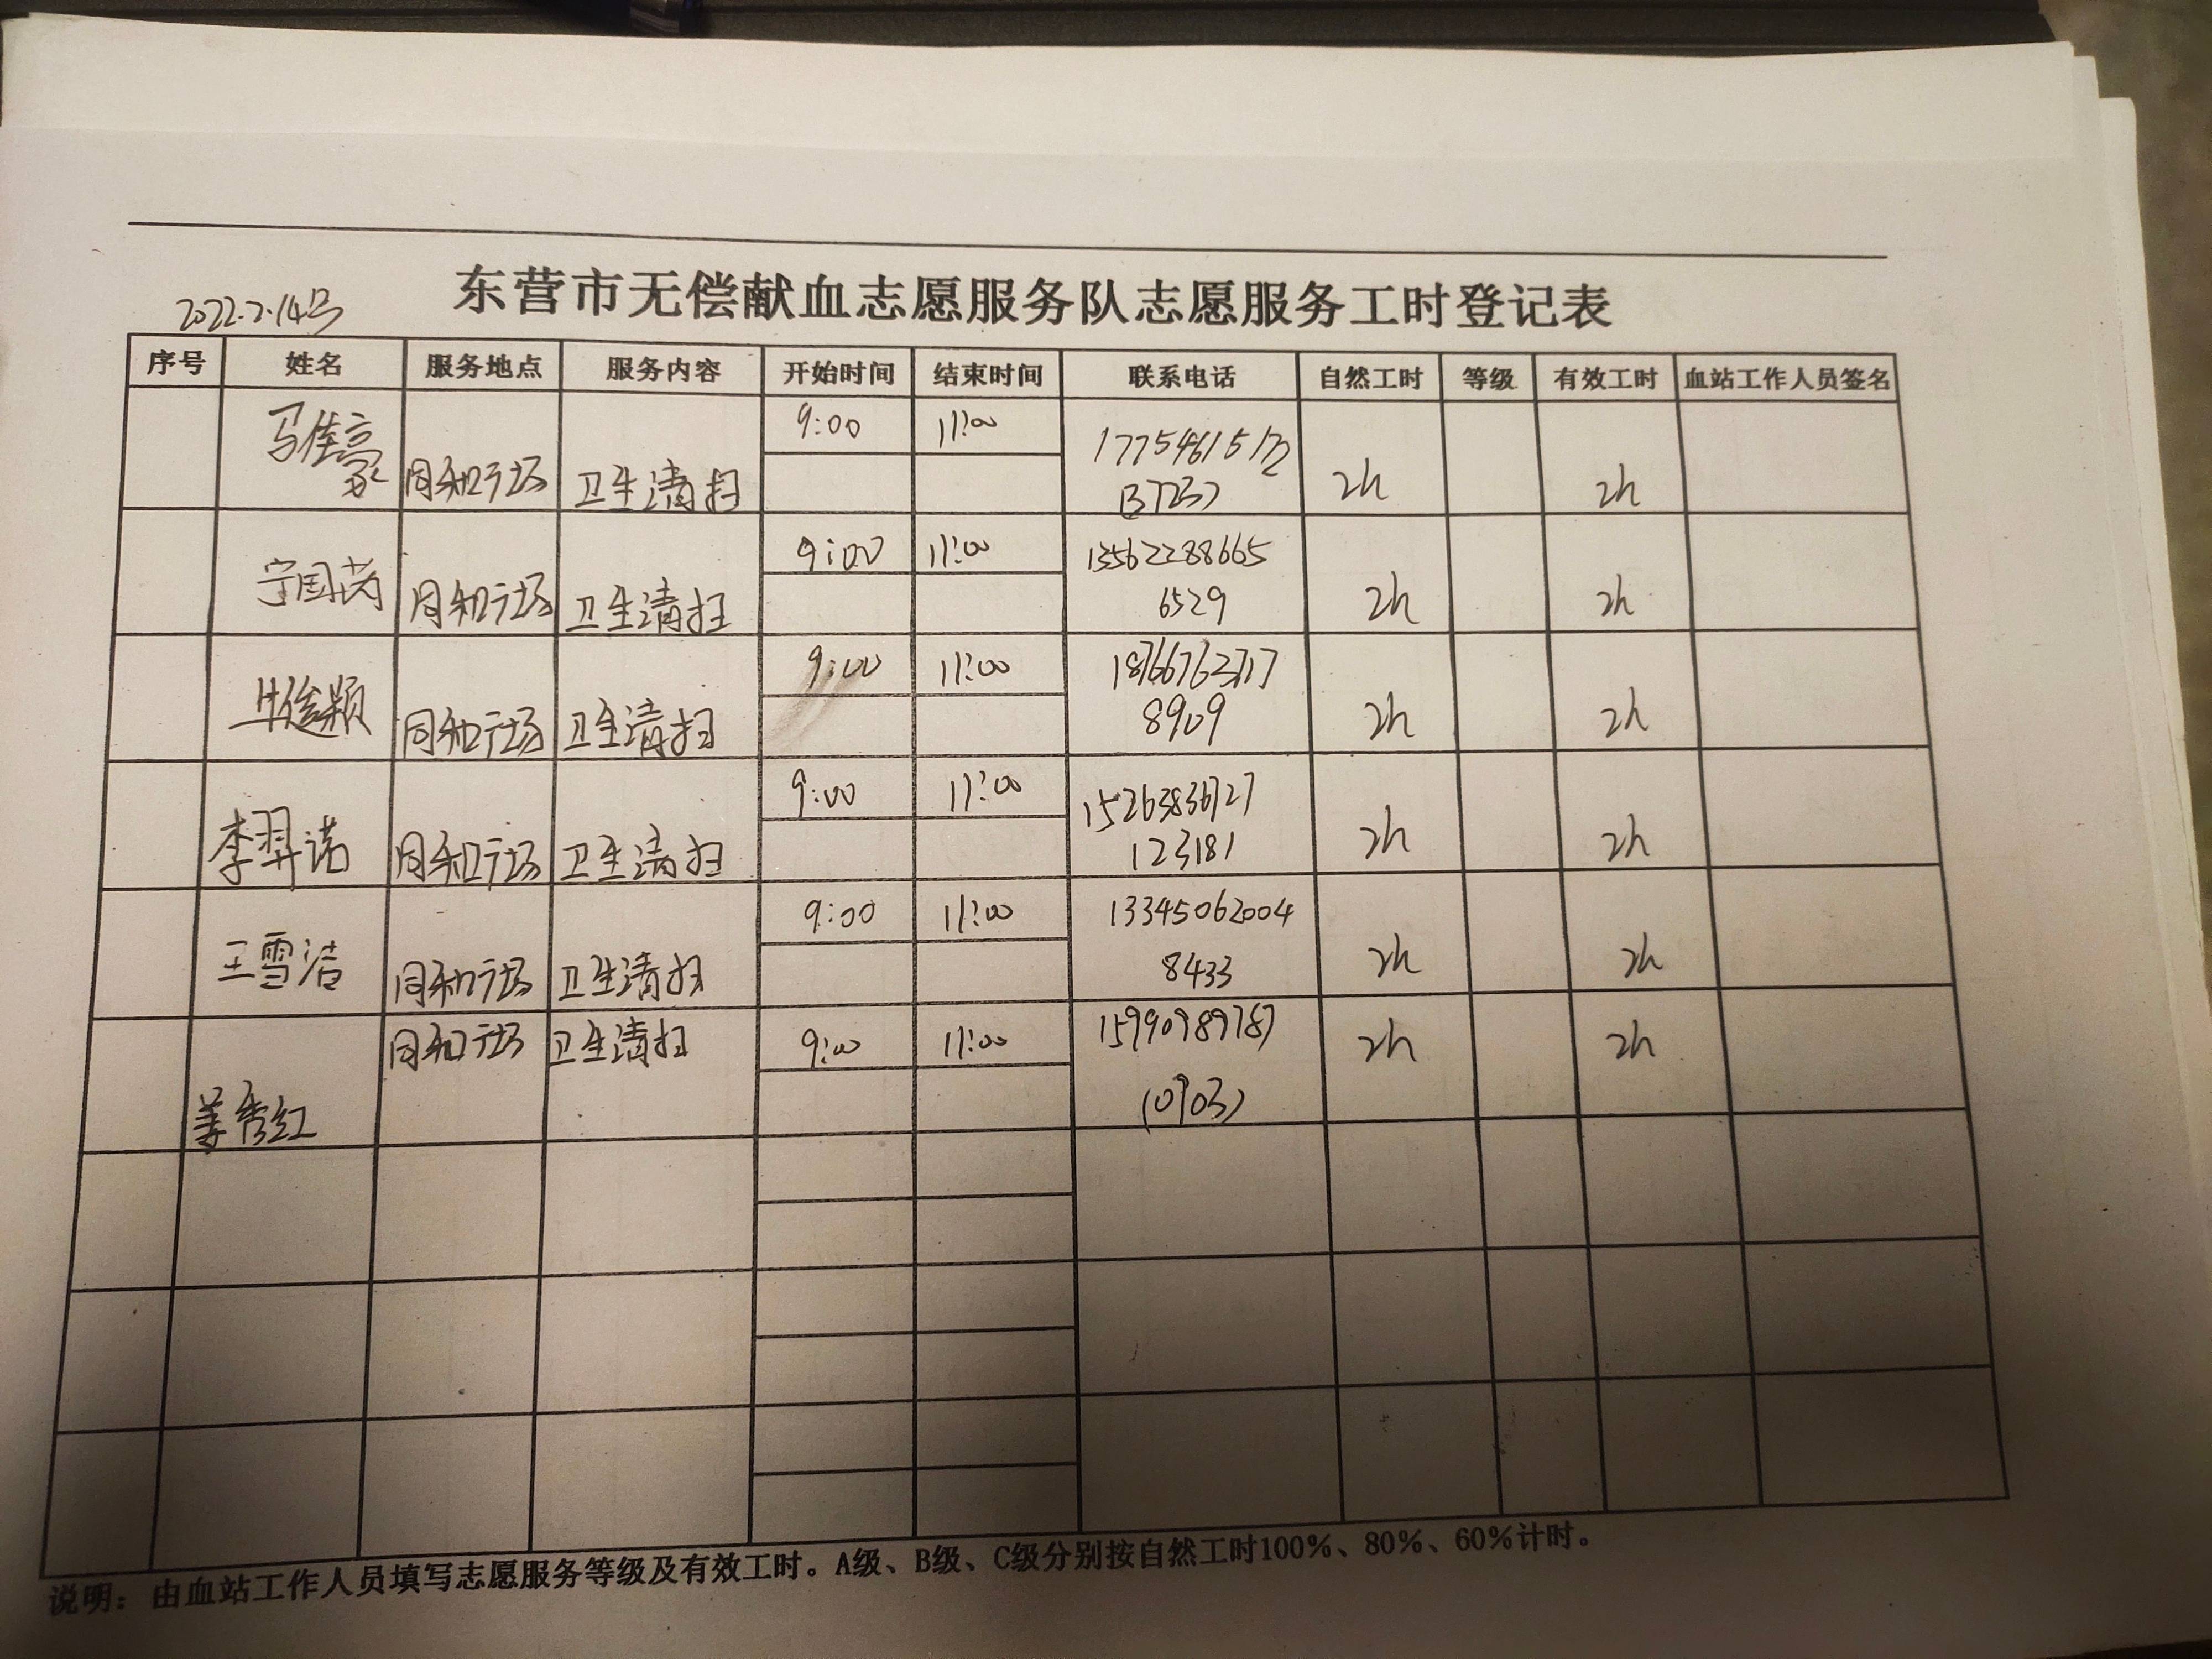 东营市无偿献血志愿服务队志愿服务工时登记表
2022.2.14号
序号 姓名 服务地点 服务内容 开始时间 结束时间 联系电话 自然工时 等级 有效工时 血站工作人员签名
马佳豪 同和市场 卫生清扫 9:00 11:00 2h 2h
宁国芮 同和市场 卫生清扫 9:00 11:00 13562288665 2h 2h
6529
同和市场 卫生清扫 9:00 11:00 18766763717 2h 2h
8909
李羿诺 同和市场 卫生清扫 9:00 11:00 15263836727 2h 2h
123181
王雪洁 同和市场 卫生清扫 9:00 11:00 13345062004 2h 2h
8433
姜秀红 同和市场 卫生清扫 9:00 11:00 15990989787 2h 2h
(0903)
说明：由血站工作人员填写志愿服务等级及有效工时。A级、B级、C级分别按自然工时100%、80%、60%计时。